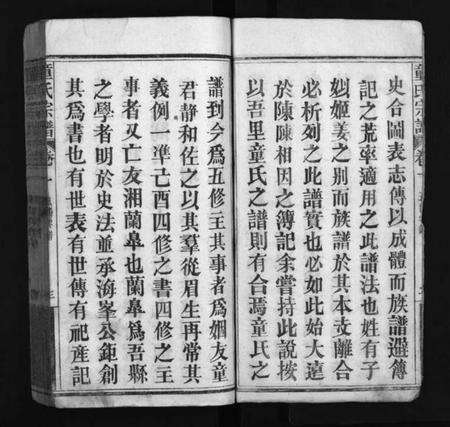 史合圖表志傳以成體而族譜選傳
記之荒率適用之此譜法也姓有子
姒姬姜之別而族譜於其本支離合
必析列之此譜實也必如此始大遠
於陳陳相因之簿記余嘗持此說按
以吾里童氏之譜則有合焉童氏之
譜到今爲五修主其事者爲姻友童
君靜和佐之以其羣從眉生再常其
義例一準己酉四修之書四修之主
事者又亡友湘蘭皐也蘭皐爲吾縣
之學者明於史法並承海峯公鉅創
其爲書也有世表有世傳有祀產記
童氏宗譜
卷一
童氏宗譜